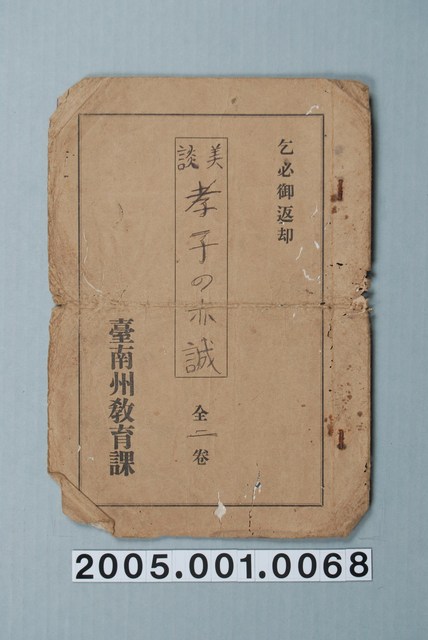 乞必御返却
美談
孝子の赤誠
全二卷
臺南州敎育課
2005.001.0068